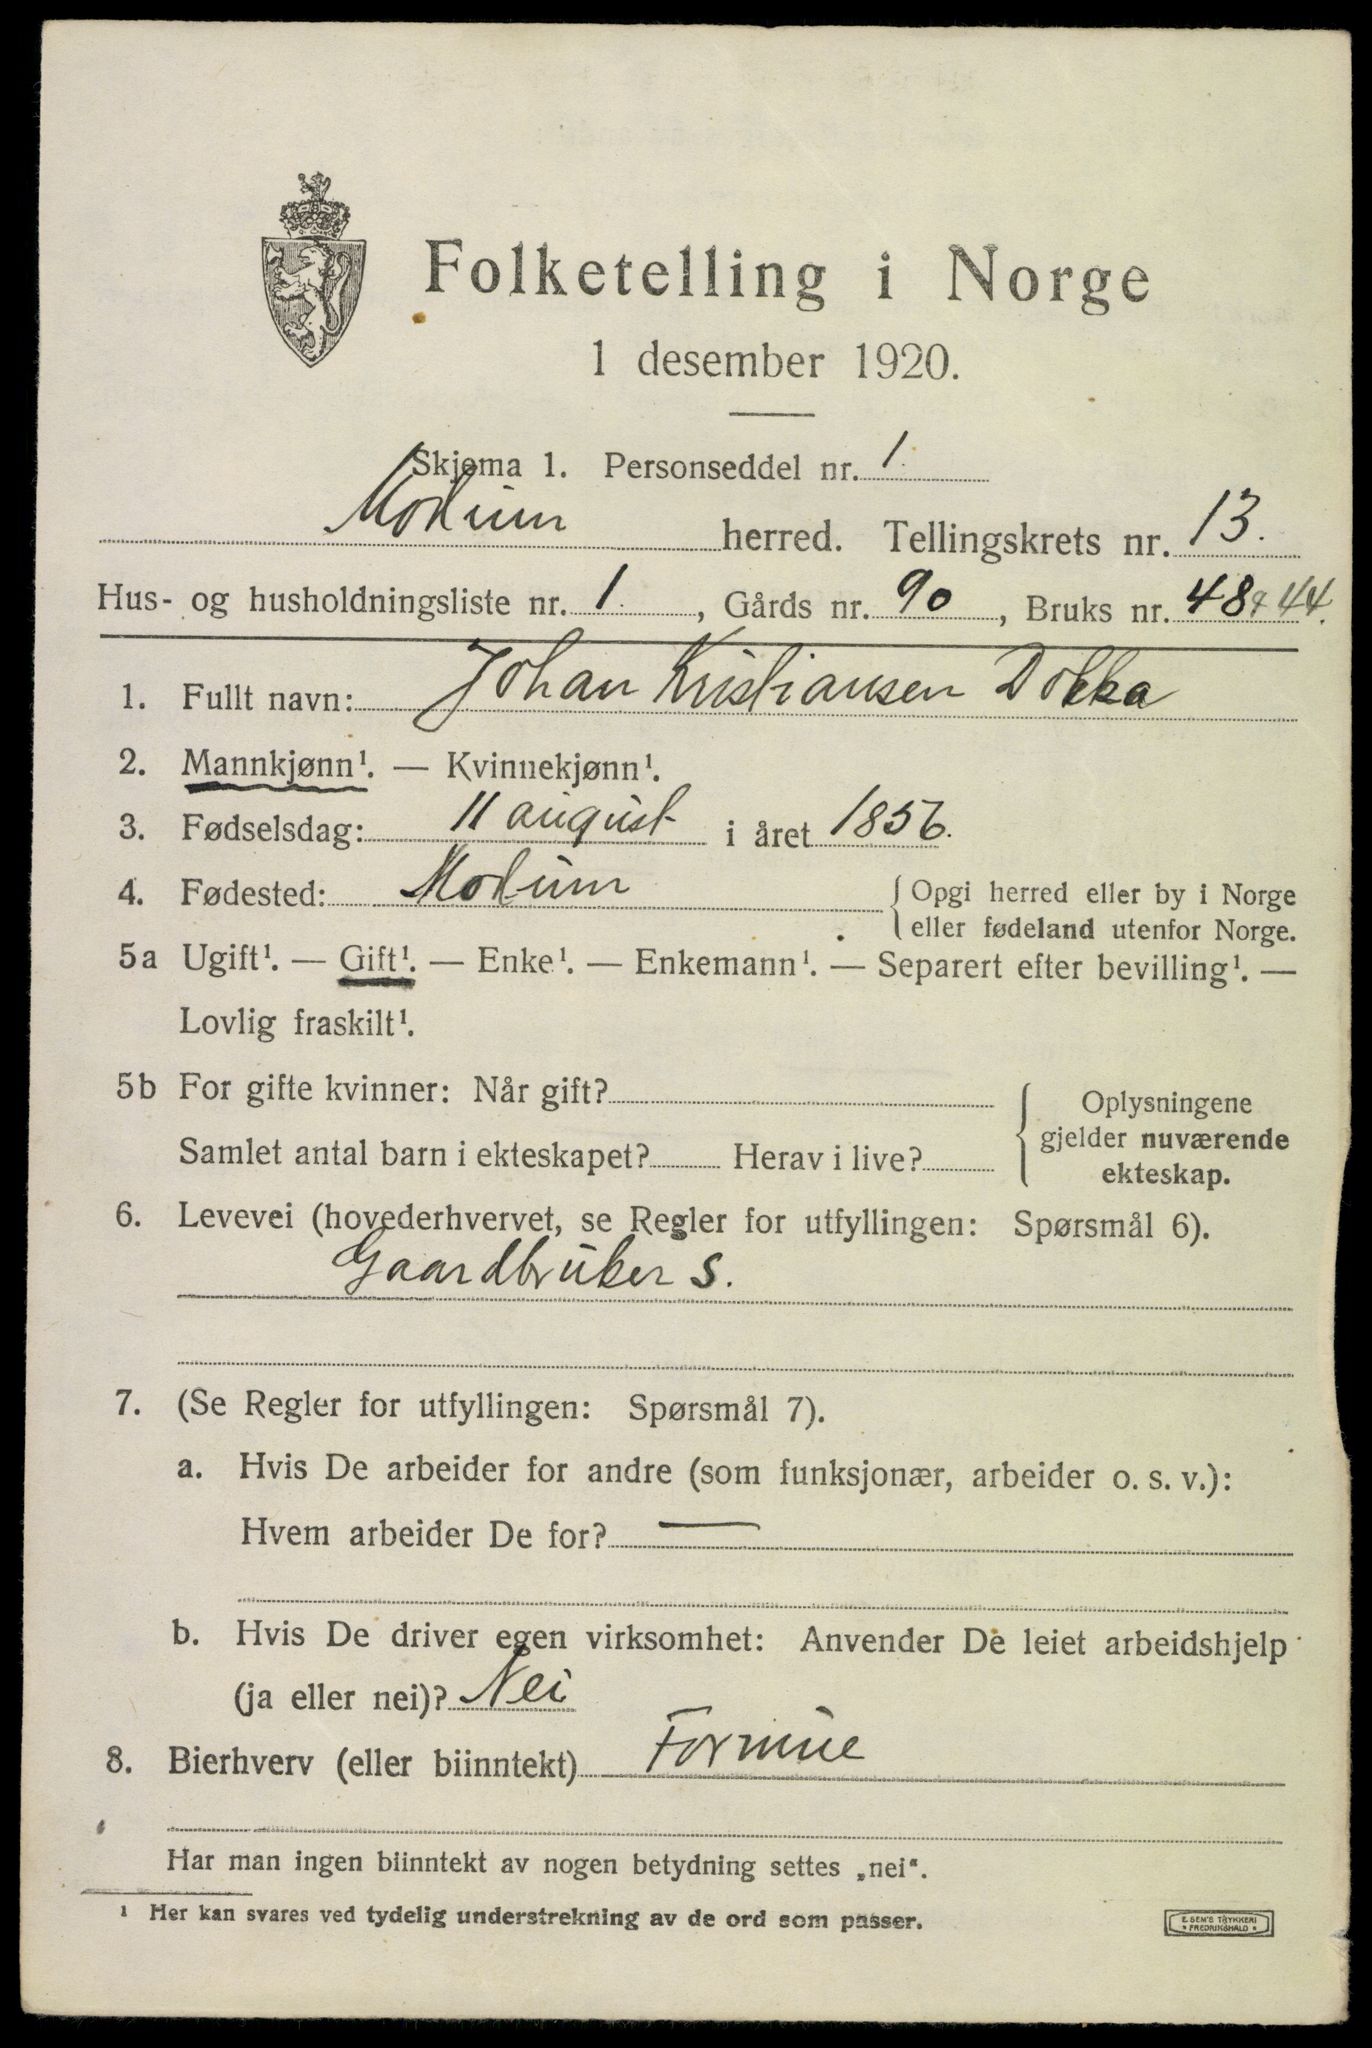 Folketelling i Norge
1 desember 1920.
Skjema 1. Personseddel nr. 1.
Modum herred. Tellingskrets nr. 13.
Hus- og husholdningsliste nr. 1. , Gårds nr. 90 , Bruks nr. 48 & 44.
1. Fullt navn: Johan Kristiansen Dokka
2. Mannkjønn¹. — Kvinnekjønn¹.
3. Fødselsdag: 11 august i året 1856.
4. Fødested: Modum { Opgi herred eller by i Norge
eller fødeland utenfor Norge.
5a Ugift¹. — Gift¹. — Enke¹. — Enkemann¹. — Separert efter bevilling¹. —
Lovlig fraskilt¹.
5b For gifte kvinner: Når gift? { Oplysningene
gjelder nuværende
ekteskap.
Samlet antal barn i ekteskapet? Herav i live?
6. Levevei (hovederhvervet, se Regler for utfyllingen: Spørsmål 6).
Gaardbruker S.
7. (Se Regler for utfyllingen: Spørsmål 7).
a. Hvis De arbeider for andre (som funksjonær, arbeider o. s. v.):
Hvem arbeider De for? —
b. Hvis De driver egen virksomhet: Anvender De leiet arbeidshjelp
(ja eller nei)? Nei
8. Bierhverv (eller biinntekt) Formue
Har man ingen biinntekt av nogen betydning settes „nei“.
¹ Her kan svares ved tydelig understrekning av de ord som passer.
E. SEM'S TRYKKERI
* FREDRIKSHALD *